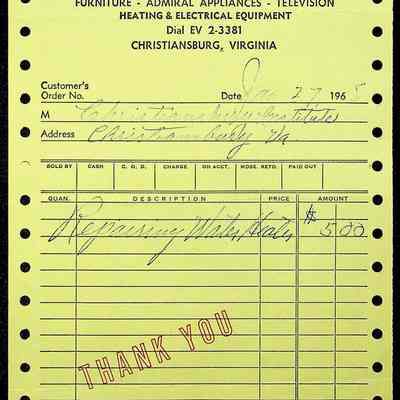 FURNITURE - ADMIRAL APPLIANCES - TELEVISION
HEATING & ELECTRICAL EQUIPMENT
Dial EV 2-3381
CHRISTIANSBURG, VIRGINIA
Customer's
Order No. Date Jan 27 1965
M Christiansburg Institute
Address Christiansburg Va
SOLD BY CASH C. O. D. CHARGE ON ACCT. MDSE. RETD. PAID OUT
QUAN. DESCRIPTION PRICE AMOUNT
Repairing Water Heater $5.00
THANK YOU